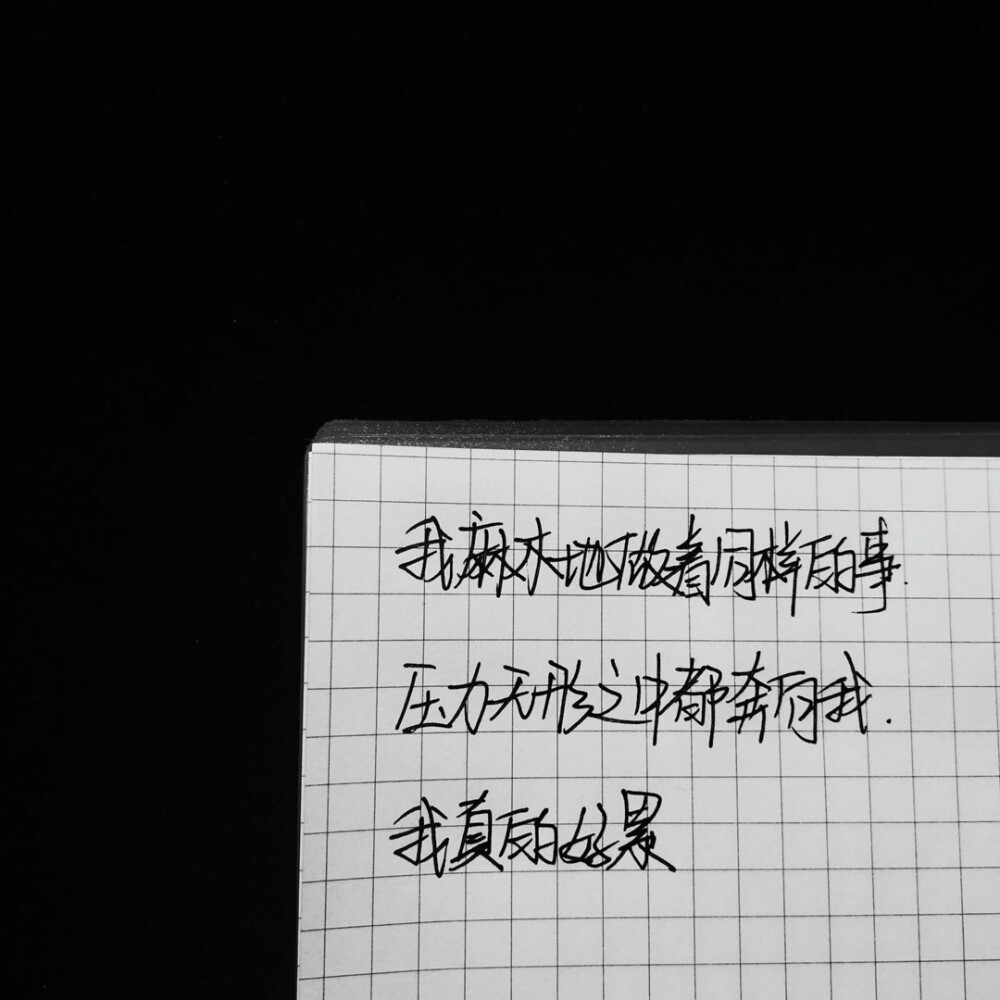 我麻木地做着同样的事.
压力无形之中都奔向我.
我真的好累